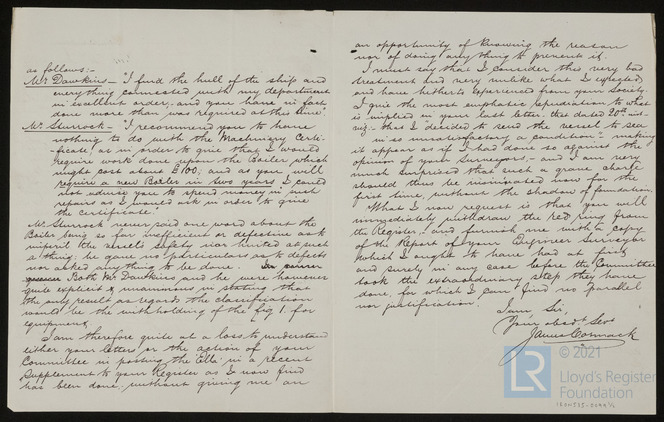 as follows:-
Mr. Dawkins - "I find the hull of the ship and
everything connected with my department
in excellent order, and you have in fact
done more than was required at this time"
Mr. Sturrock - "I recommend you to have
nothing to do with the Machinery Certi-
ficate, as in order to give that I would
require work done upon the Boiler which
might cost about £100; and as you will
require a new Boiler in two years I could
not advise you to spend money on such
repairs as I would ask in order to give
the certificate."
Mr. Sturrock never said one word about the
Boiler being so far inefficient or defective as to
imperil the vessel's safety nor hinted at such
a thing: he gave no particulars as to defects
nor asked anything to be done.
Both Mr. Dawkins and he were however
quite explicit & unanimous in stating that
the only result as regards the classification
would be the withholding of the fig. 1. for
equipment.
I am therefore quite at a loss to understand
either your letters or the action of your
Committee in posting the "Ella" in a recent
Supplement to your Register as I now find
has been done, without giving me an
an opportunity of knowing the reason
nor of doing anything to prevent it.
I must say that I consider this very bad
treatment and very unlike what I expected
and have hitherto experienced from your Society.
I give the most emphatic repudiation to what
is implied in your last letter, that dated 20th inst
viz:- that I decided to send the vessel to sea
"in so unsatisfactory a condition" - making
it appear as if I had done so against the
opinion of your Surveyors,- and I am very
much surprised that such a grave charge
should thus be insinuated now for the
first time, without the shadow of foundation.
What I now request is that you will
immediately withdraw the red ring from
the Register, and furnish me with a copy
of the Report of your Engineer Surveyor
which I ought to have had at first
and surely in any case before the Committee
took the extraordinary step they have
done, for which I can find no parallel
nor justification.
I am, Sir,
Your obedt Servt
James Cormack
© 2021
LR
Lloyd's Register
Foundation